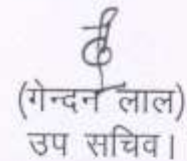 (गेन्दन लाल)
उप सचिव।